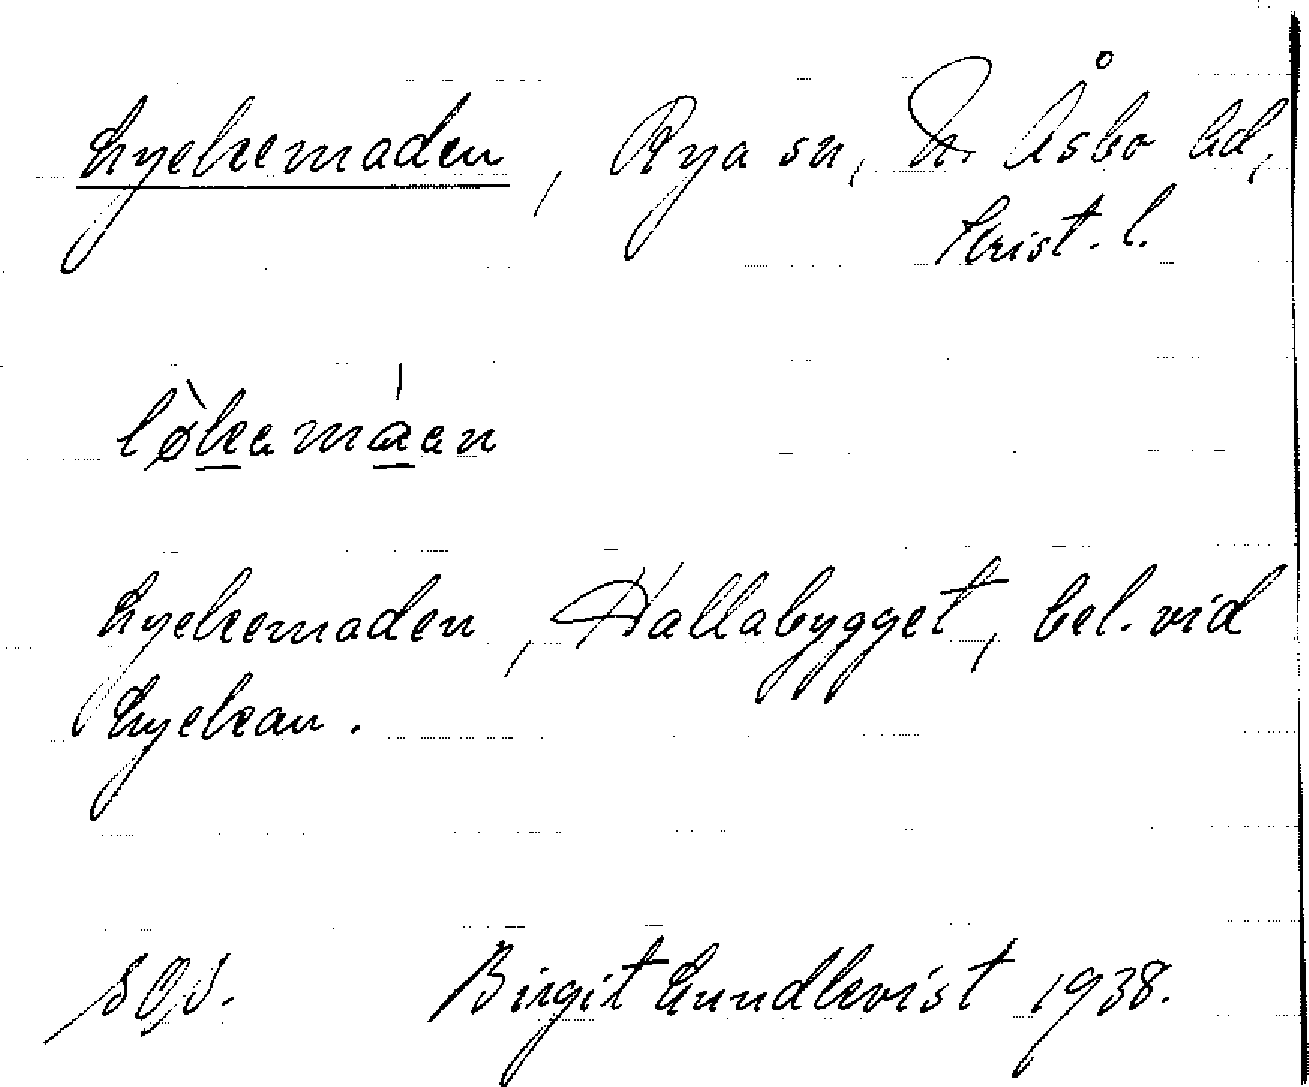 Lyckemaden, Rya sn, N. Åsbo hd,
Krist. l.
løkamáan
Lyckemaden, Hallabygget, bel. vid
Lyckan.
Birgit Lundkvist 1938.